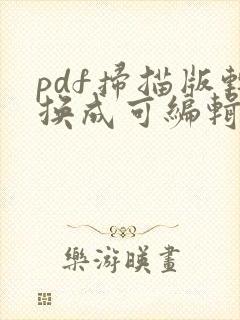 pdf掃描版轉
換成可編輯
樂游暎畫